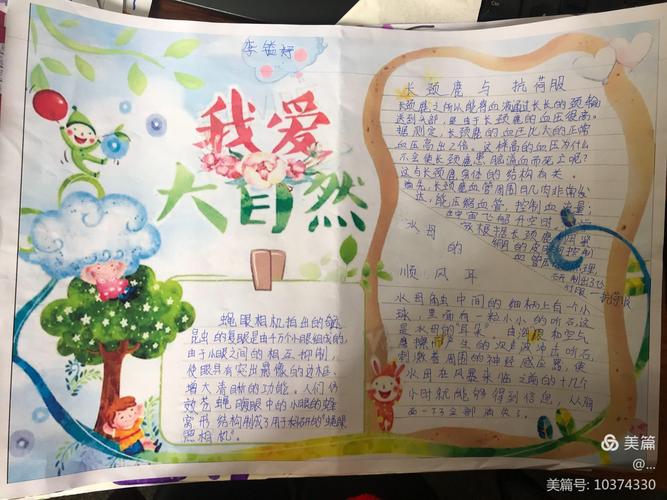 李镒妤
我爱
大自然
长颈鹿与抗荷服
长颈鹿之所以能将血液通过长长的颈输
送到头部，是由于长颈鹿的血压很高。
据测定，长颈鹿的血压比人的正常
血压高出2倍。这样高的血压为什么
不会使长颈鹿患脑溢血而死亡呢？
这与长颈鹿身体的结构有关。
首先，长颈鹿血管周围肌肉非常发
达，能压缩血管，控制血流量，
水母
的
顺风耳
水母触 中间的细柄上有一个小
球，里面有一粒小小的听石，这
是水母的“耳朵”。由海浪和空气
摩擦而产生的次声波冲击听石，
刺激着周围的神经感应器，使
水母在风暴来临之前的十几个
小时就能够得到信息，从海
面一下子全部消失了。
蝇眼相机拍出的
昆虫的复眼是由4万个小眼组成的，
由于小眼之间的相互抑制，
使眼具有突出影像的边框，
增大清 目标的功能。人们仿
效苍蝇 眼中的小眼的蜂
窝形结构制成了用于 的“蝇眼
照相机”。
美篇
@...
美篇号: 10374330